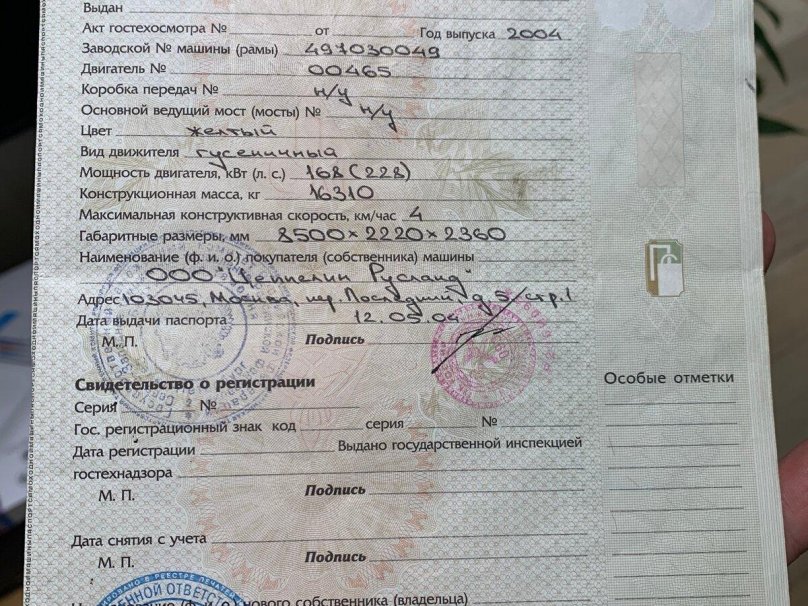 Выдан
Акт гостехосмотра № от Год выпуска 2004
Заводской № машины (рамы) 491030049
Двигатель № 00465
Коробка передач № н/у
Основной ведущий мост (мосты) № н/у
Цвет желтый
Вид движителя гусеничный
Мощность двигателя, кВт (л. с.) 168 (228)
Конструкционная масса, кг 16310
Максимальная конструктивная скорость, км/час 4
Габаритные размеры, мм 8500×2220×2360
Наименование (ф. и. о.) покупателя (собственника) машины
ООО "Цеппелин Русланд"
Адрес 103045, Москва, пер. Последний, д. 5, стр. 1
Дата выдачи паспорта 12.05.04
М. П. Подпись
Свидетельство о регистрации
Особые отметки
Серия №
Гос. регистрационный знак код серия №
Дата регистрации Выдано государственной инспекцией
гостехнадзора
М. П. Подпись
Дата снятия с учета
М. П. Подпись
нового собственника (владельца)